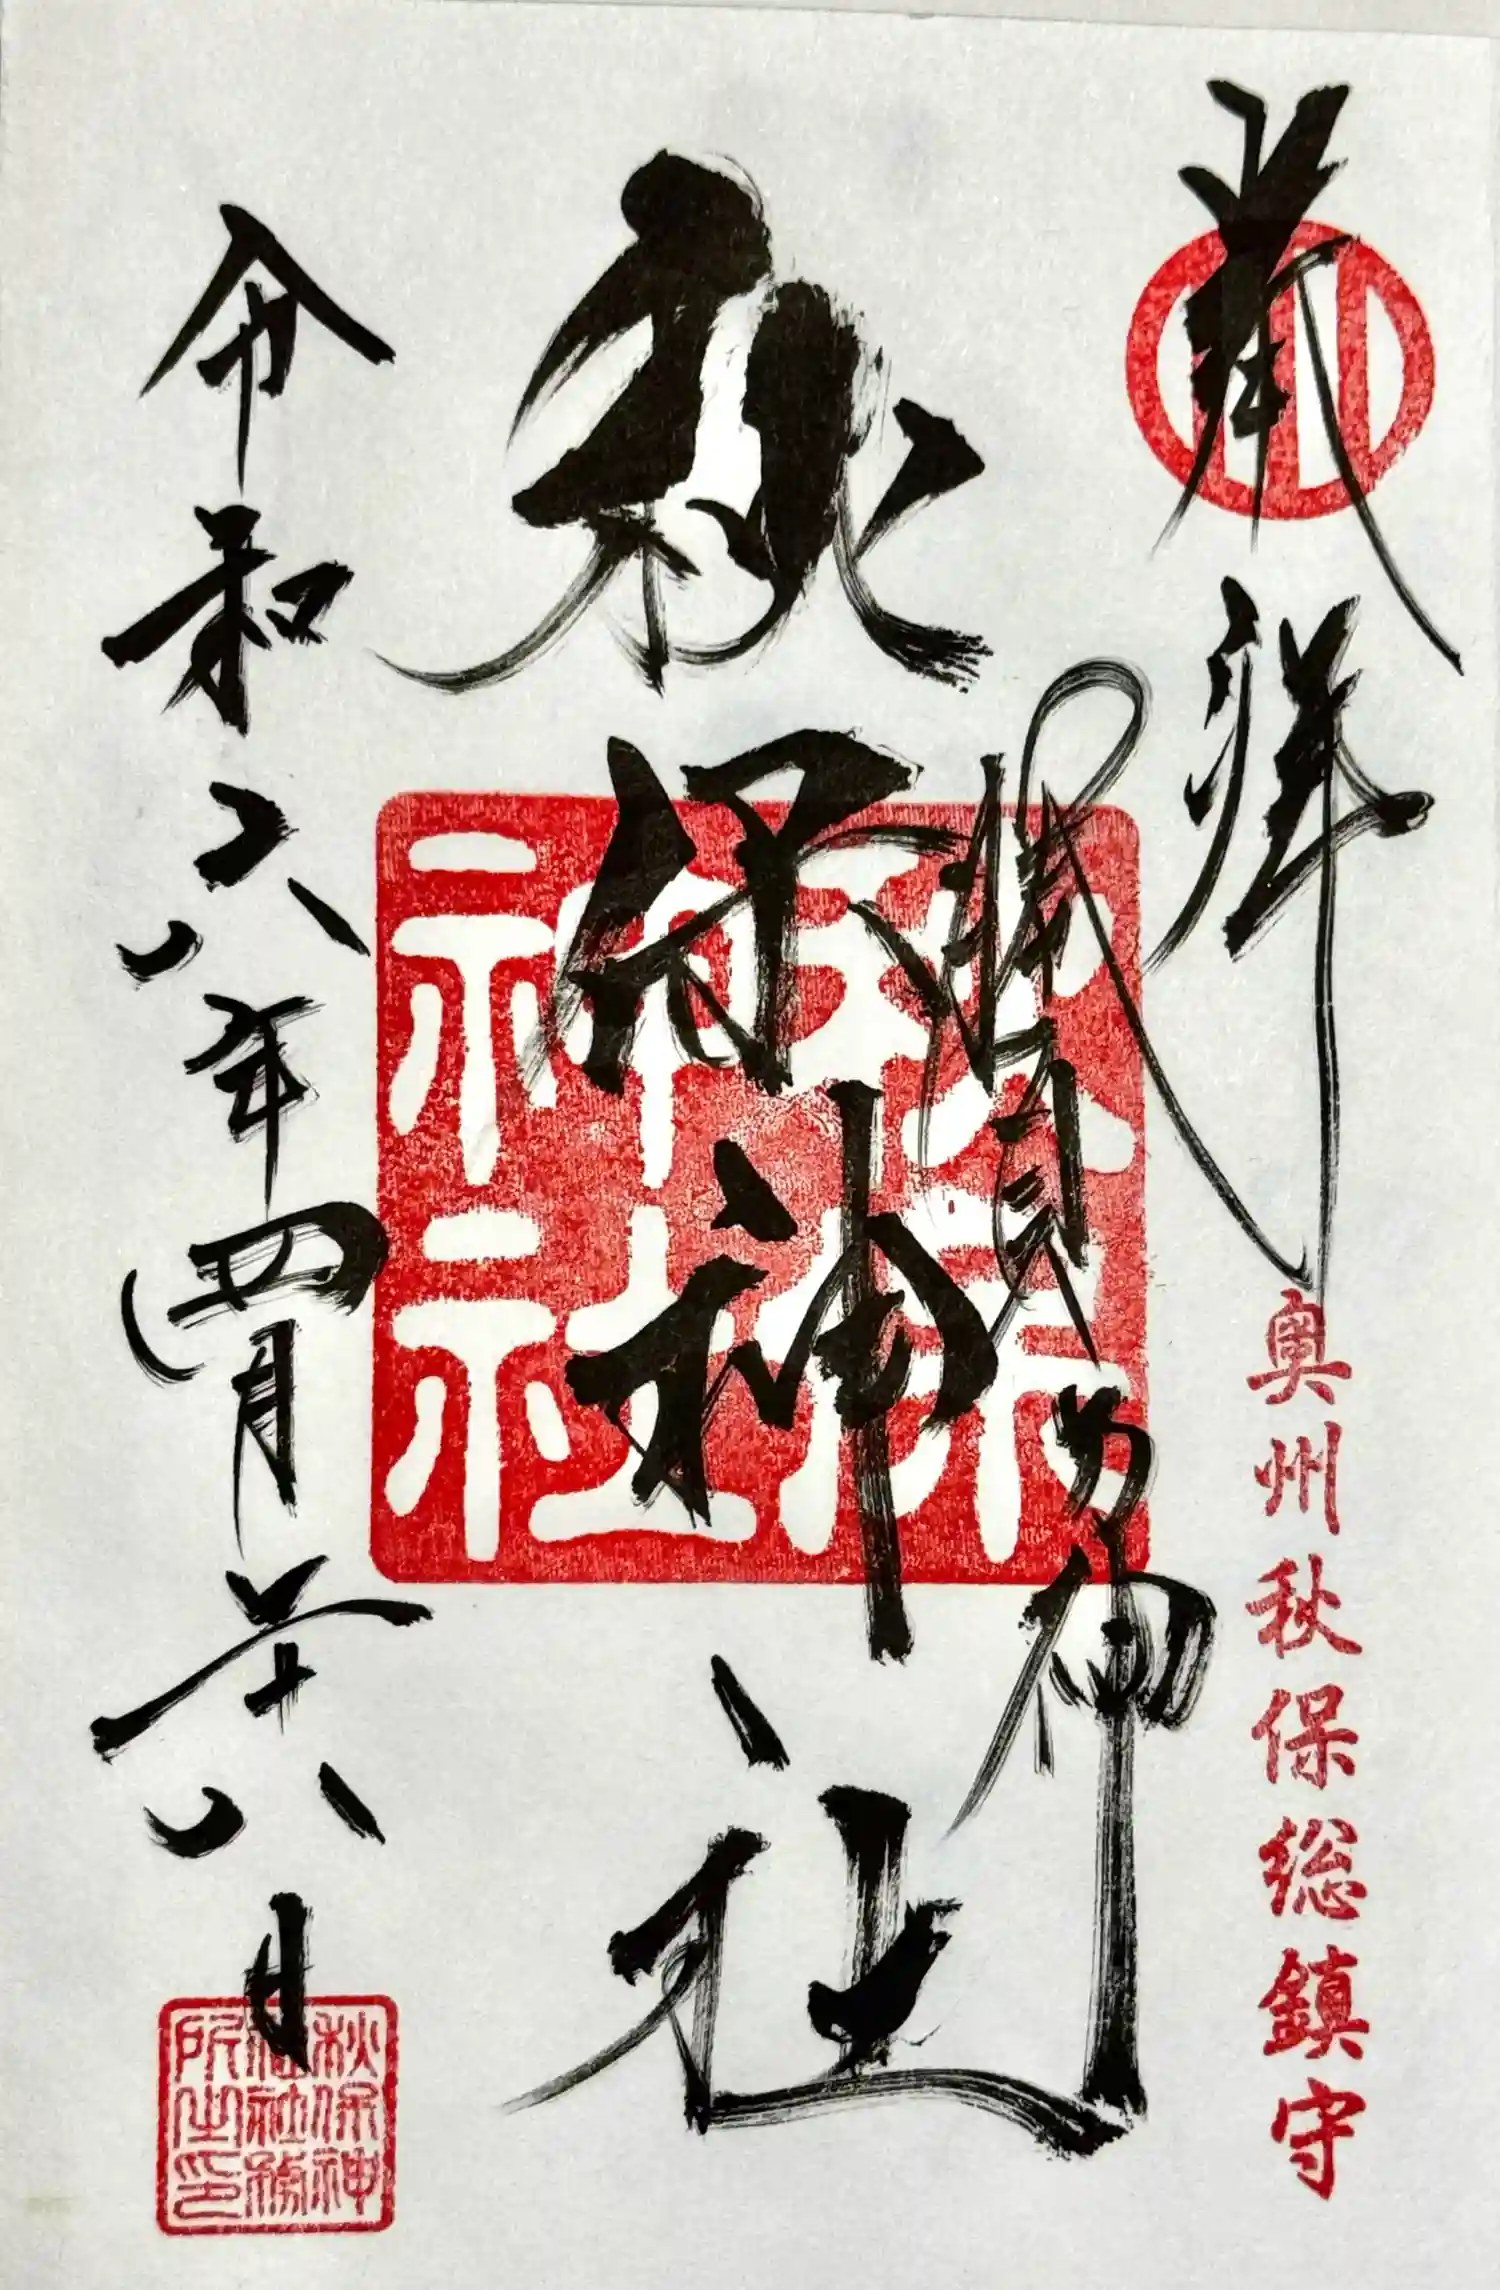 奉拝
奥州秋保総鎮守
勝負乃神
秋保神社
秋保
神社
令和六年四月二十八日
秋保神
社社務
所之印